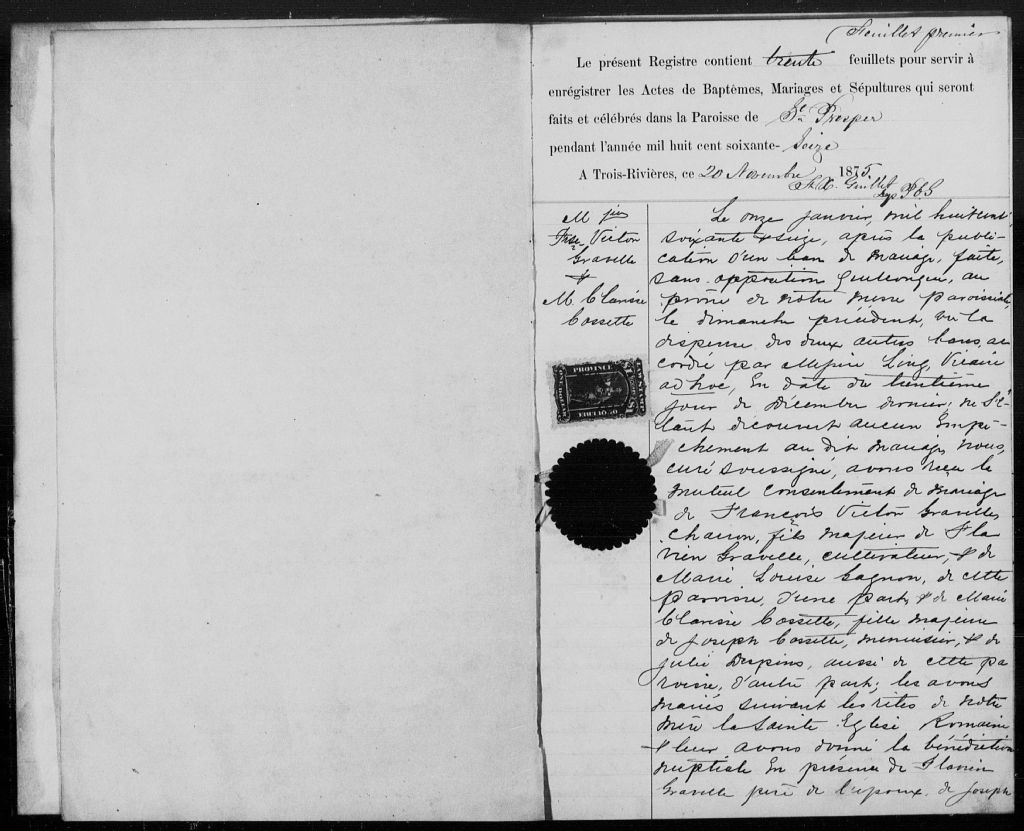 Feuillet premier
Le présent Registre contient trente feuillets pour servir à
enrégistrer les Actes de Baptêmes, Mariages et Sépultures qui seront
faits et célébrés dans la Paroisse de St Prosper
pendant l'année mil huit cent soixante-Seize
A Trois-Rivières, ce 20 Novembre 1875.
Guillet
M
Victor
Gravelle
&
M Clarisse
Cossette
PROVINCE
$1
Le onze janvier, mil huit cent
soixante & seize, après la publi-
cation d'un ban de mariage, faite,
sans opposition quelconque, au
prône de notre messe paroissiale,
le dimanche précédent, vu la
dispense des deux autres bans, ac
cordée par Messire Ling, Vicaire
ad hoc, en date du trentième
jour de Décembre dernier; ne s'é-
tant découvert aucun empê-
chement au dit mariage, nous,
curé soussigné, avons reçu le
mutuel consentement de mariage
de François Victor Gravelle,
fils majeur de Fla
vien Gravelle, cultivateur, & de
Marie Louise Gagnon, de cette
paroisse, d'une part, & de Marie
Clarisse Cossette, fille majeure
de Joseph Cossette, menuisier, & de
julie Despins, aussi de cette pa
roisse, d'autre part; les avons
mariés suivant les rites de notre
mère la Sainte Eglise Romaine
& leur avons donné la bénédiction
nuptiale en présence de Flavien
Gravelle père de l'époux, de Joseph